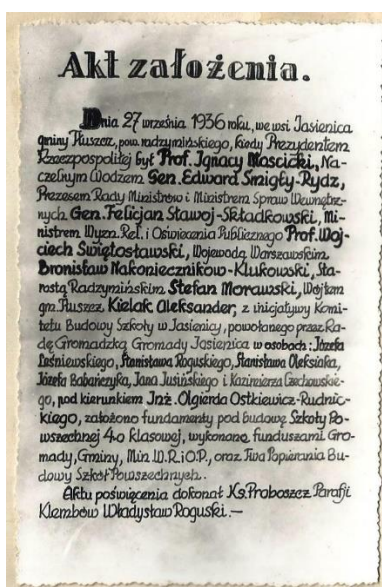 Akt założenia.
Dnia 27 września 1936 roku, we wsi Jasienica
gminy Tłuszcz, pow. radzymińskiego, kiedy Prezydentem
Rzeczpospolitej był Prof. Ignacy Mościcki, Na-
czelnym Wodzem Gen. Edward Śmigły-Rydz,
Prezesem Rady Ministrów i Ministrem Spraw Wewnętrz-
nych Gen. Felicjan Sławoj-Składkowski, Mi-
nistrem Wyzn. Rel. i Oświecenia Publicznego Prof. Woj-
ciech Świętosławski, Wojewodą Warszawskim
Bronisław Nakoniecznikow-Klukowski, Sta-
rostą Radzymińskim Stefan Morawski, Wójtem
gm. Tłuszcz Kielak Aleksander, z inicjatywy Komi-
tetu Budowy Szkoły w Jasienicy, powołanego przez Ra-
dę Gromadzką Gromady Jasienica w osobach: Józefa
Leśniewskiego, Stanisława Roguskiego, Stanisława Oleksiaka,
Józefa Babańczyka, Jana Jusińskiego i Kazimierza Czechowskie-
go, pod kierunkiem Inż. Olgierda Ostkiewicz-Rudnic-
kiego, założono fundamenty pod budowę Szkoły Po-
wszechnej 4o klasowej, wykonane funduszami Gro-
mady, Gminy, Min W.R.i O.P., oraz Twa Popierania Bu-
dowy Szkół Powszechnych.
Aktu poświęcenia dokonał Ks. Proboszcz Parafji
Klembów Władysław Roguski.—